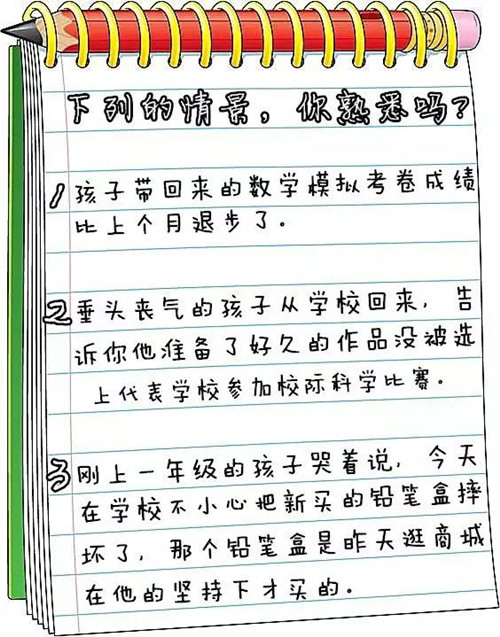 下列的情景，你熟悉吗？
1 孩子带回来的数学模拟考卷成绩
比上个月退步了。
2 垂头丧气的孩子从学校回来，告
诉你他准备了好久的作品没被选
上代表学校参加校际科学比赛。
3 刚上一年级的孩子哭着说，今天
在学校不小心把新买的铅笔盒摔
坏了，那个铅笔盒是昨天逛商城
在他的坚持下才买的。